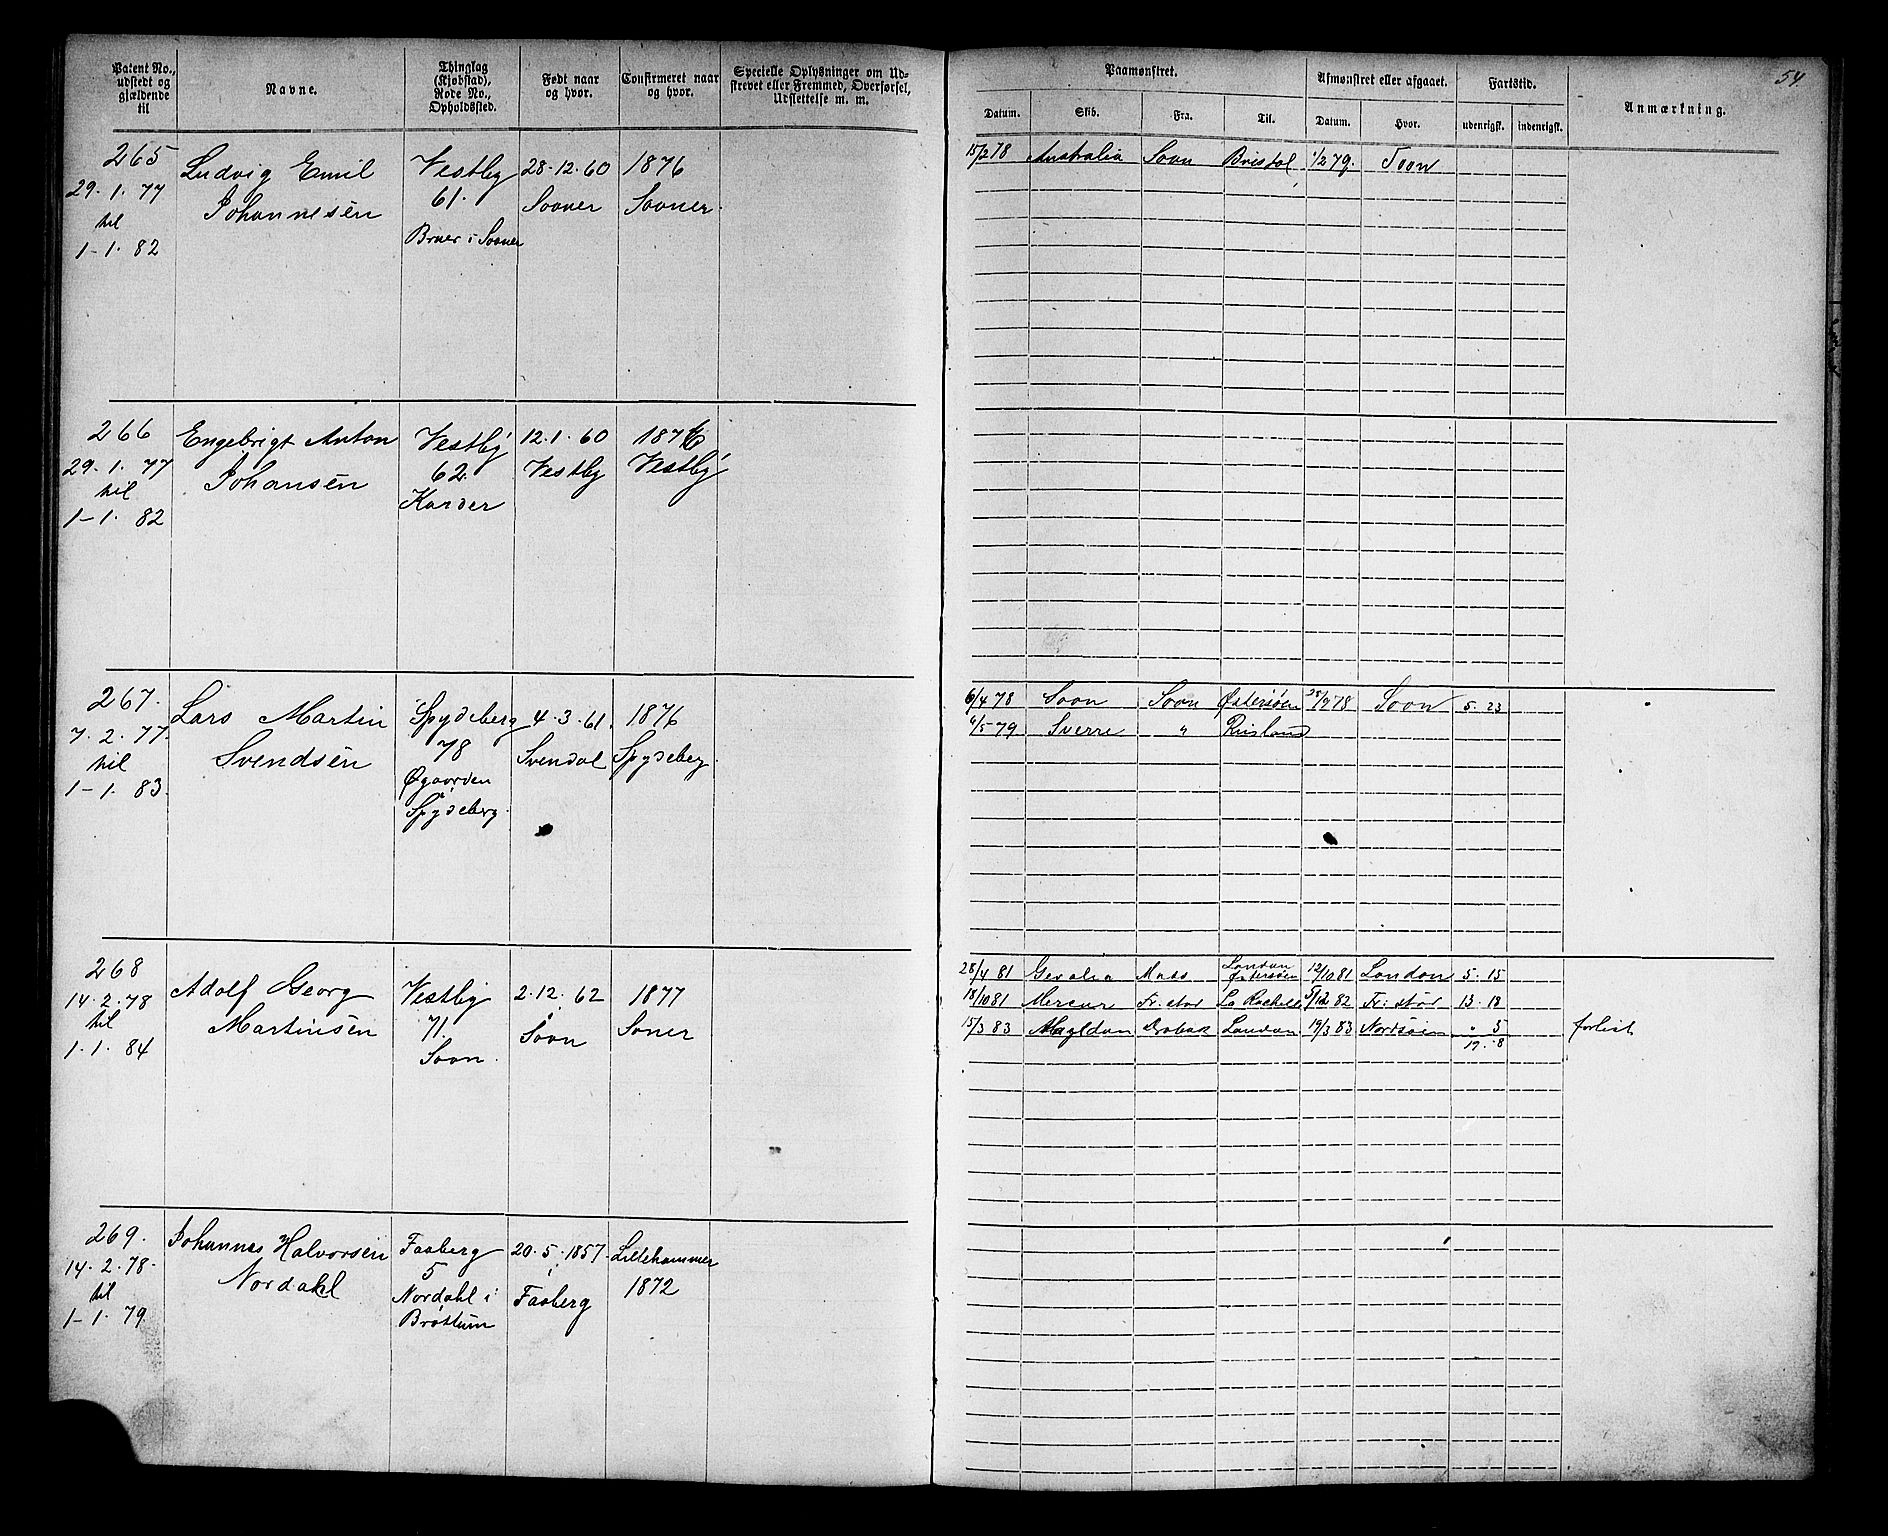 54
Patent No., udstedt og gjældende til
Navne.
Thinglag (Kjøbstad), Rode No., Opholdssted.
Født naar og hvor.
Confirmeret naar og hvor.
Specielle Oplysninger om Udskrevet eller Fremmed, Overførsel, Udslettelse m. m.
Paamønstret.
Afmønstret eller afgaaet.
Fartstid.
Anmærkning.
Datum. Skib. Fra. Til. Datum. Hvor. udenrigsk. indenrigsk.
265 Ludvig Emil Vestby 28-12-60 1876
29-1-77 Johannesen 61. Sooner Sooner
til
1-1-82 Bruer i Sooner
15/2 78 Australia Soon Bristol 1/2 79. Soon
266 Engebrigt Anton Vestby 12-1-60 1876
29-1-77 Johansen 62. Vestby Vestby
til Karder
1-1-82
267. Lars Martin Spydeberg 4-3-61. 1876
7-2-77. Svendsen 78 Svendal Spydeberg
til Øgaarden
1-1-83. i Spydeberg.
6/4 78 Soon Soon Østersøen 28/9 78 Soon 5. 23
6/5 79 Sverre " Rusland
268 Adolf Georg Vestby 2-12-62 1877
14-2-78 Martinsen 71. i Soon Soner
til Soon.
1-1-84
28/4 81 Gevalia Moss London Østersøen 12/10 81 London 5. 15
18/10 81 Mercur Fr:stad La Rochelle 82 Fr:stad 13. 18
15/3 83 Drøbak London 19/3 83 Nordsøen " 5 forlist
19. 8
269. Johannes Halvorsen Faaberg 20-5-1857. Lillehammer
14-2-78. Nordahl 5 i Faaberg 1872
til Nordahl i
1-1-79. Brøttum